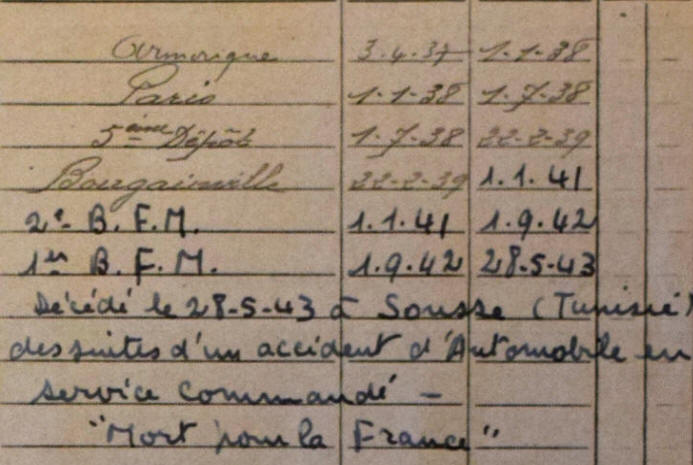 Armorique 3-4-37 1-1-38
Paris 1-1-38 1-7-38
5ème Dépôt 1-7-38 22-2-39
Bougainville 22-2-39 1.1.41
2e B.F.M. 1.1.41 1.9.42
1er B.F.M. 1.9.42 28-5-43
Décédé le 28-5-43 à Sousse (Tunisie)
des suites d'un accident d'Automobile en
service commandé -
"Mort pour la France"